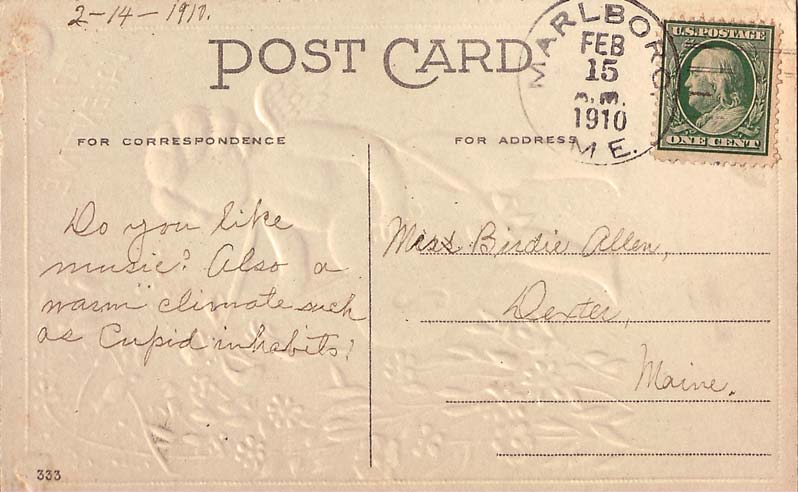 2-14-1910.
POST CARD
MARLBORO
FEB
15
A.M.
1910
ME.
U.S. POSTAGE
ONE CENT
FOR CORRESPONDENCE
FOR ADDRESS
Do you like
music? Also a
warm climate such
as Cupid inhabits?
Miss Birdie Allen,
Dexter,
Maine.
333